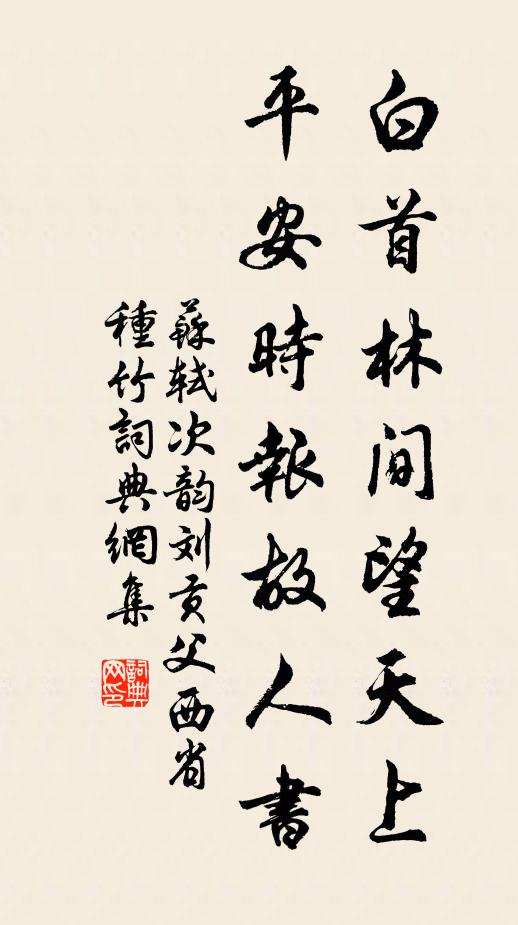 白首林间望天上
平安時報故人書
蘇軾次韵刘贡父西省
種竹詞典網集
詞典网印